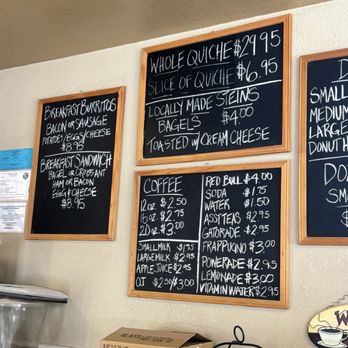 BREAKFAST BURRITOS
BACON OR SAUSAGE
POTATOES/EGGS/CHEESE
$8.95
BREAKFAST SANDWICH
BAGEL OR CROISSANT
HAM OR BACON
EGG & CHEESE
$8.95
WHOLE QUICHE $29.95
SLICE OF QUICHE $6.95
LOCALLY MADE STEINS
BAGELS $4.00
TOASTED W/ CREAM CHEESE
COFFEE
12oz $2.50
16oz $2.75
20oz $3.00
SMALL MILK $1.75
LARGE MILK $2.95
APPLE JUICE $2.95
OJ $2.50/$3.00
RED BULL $4.00
SODA $1.75
WATER $1.50
ASST TEAS $2.95
GATORADE $2.95
FRAPPUCINO $3.00
POWERADE $2.95
LEMONADE $3.00
VITAMIN WATER $2.95
SMALL
MEDIUM
LARGE
DONUT H
DO
SMA